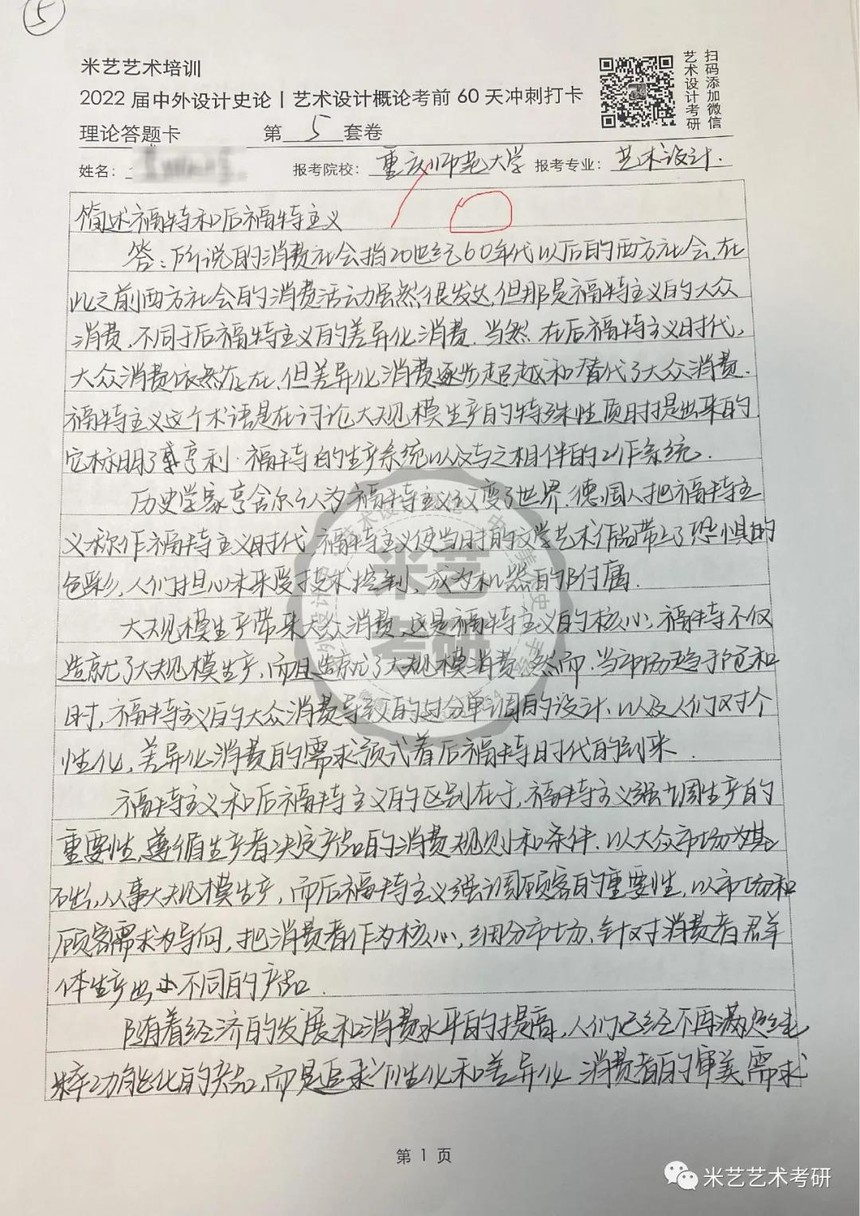 5
米艺艺术培训
2022 届中外设计史论 | 艺术设计概论考前 60 天冲刺打卡
理论答题卡 第 5 套卷
扫码添加微信
艺术设计考研
姓名： 报考院校：重庆师范大学 报考专业：艺术设计.
简述福特和后福特主义
答：所说的消费社会指20世纪60年代以后的西方社会,在
此之前西方社会的消费活动虽然很发达,但那是福特主义的大众
消费,不同于后福特主义的差异化消费.当然,在后福特主义时代,
大众消费依然存在,但差异化消费逐步超越和替代了大众消费.
福特主义这个术语是在讨论大规模生产的特殊性质时提出来的,
它标明了亨利·福特的生产系统以及与之相伴的工作系统.
历史学家亨舍尔认为福特主义改变了世界.德国人把福特主
义称作福特主义时代,福特主义使当时的文学艺术作品带上了恐惧的
色彩,人们担心未来受技术控制、成为机器的附属.
大规模生产带来大众消费,这是福特主义的核心,福特不仅
造就了大规模生产,而且造就了大规模消费.然而,当市场趋于饱和
时,福特主义的大众消费导致的过分单调的设计、以及人们对个
性化,差异化消费的需求预式着后福特时代的到来.
福特主义和后福特主义的区别在于,福特主义强调生产的
重要性,遵循生产者决定产品的消费规则和条件.以大众市场为基
础,从事大规模生产,而后福特主义强调顾客的重要性,以市场和
顾客需求为导向,把消费者作为核心,细分市场、针对消费者群
体生产出不同的产品.
随着经济的发展和消费水平的提高,人们已经不再满足纯
粹功能化的产品,而是追求个性化和差异化.消费者的审美需求
第 1 页
米艺
考研
米艺艺术考研